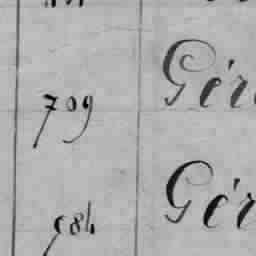 709 Gér
584 Gér